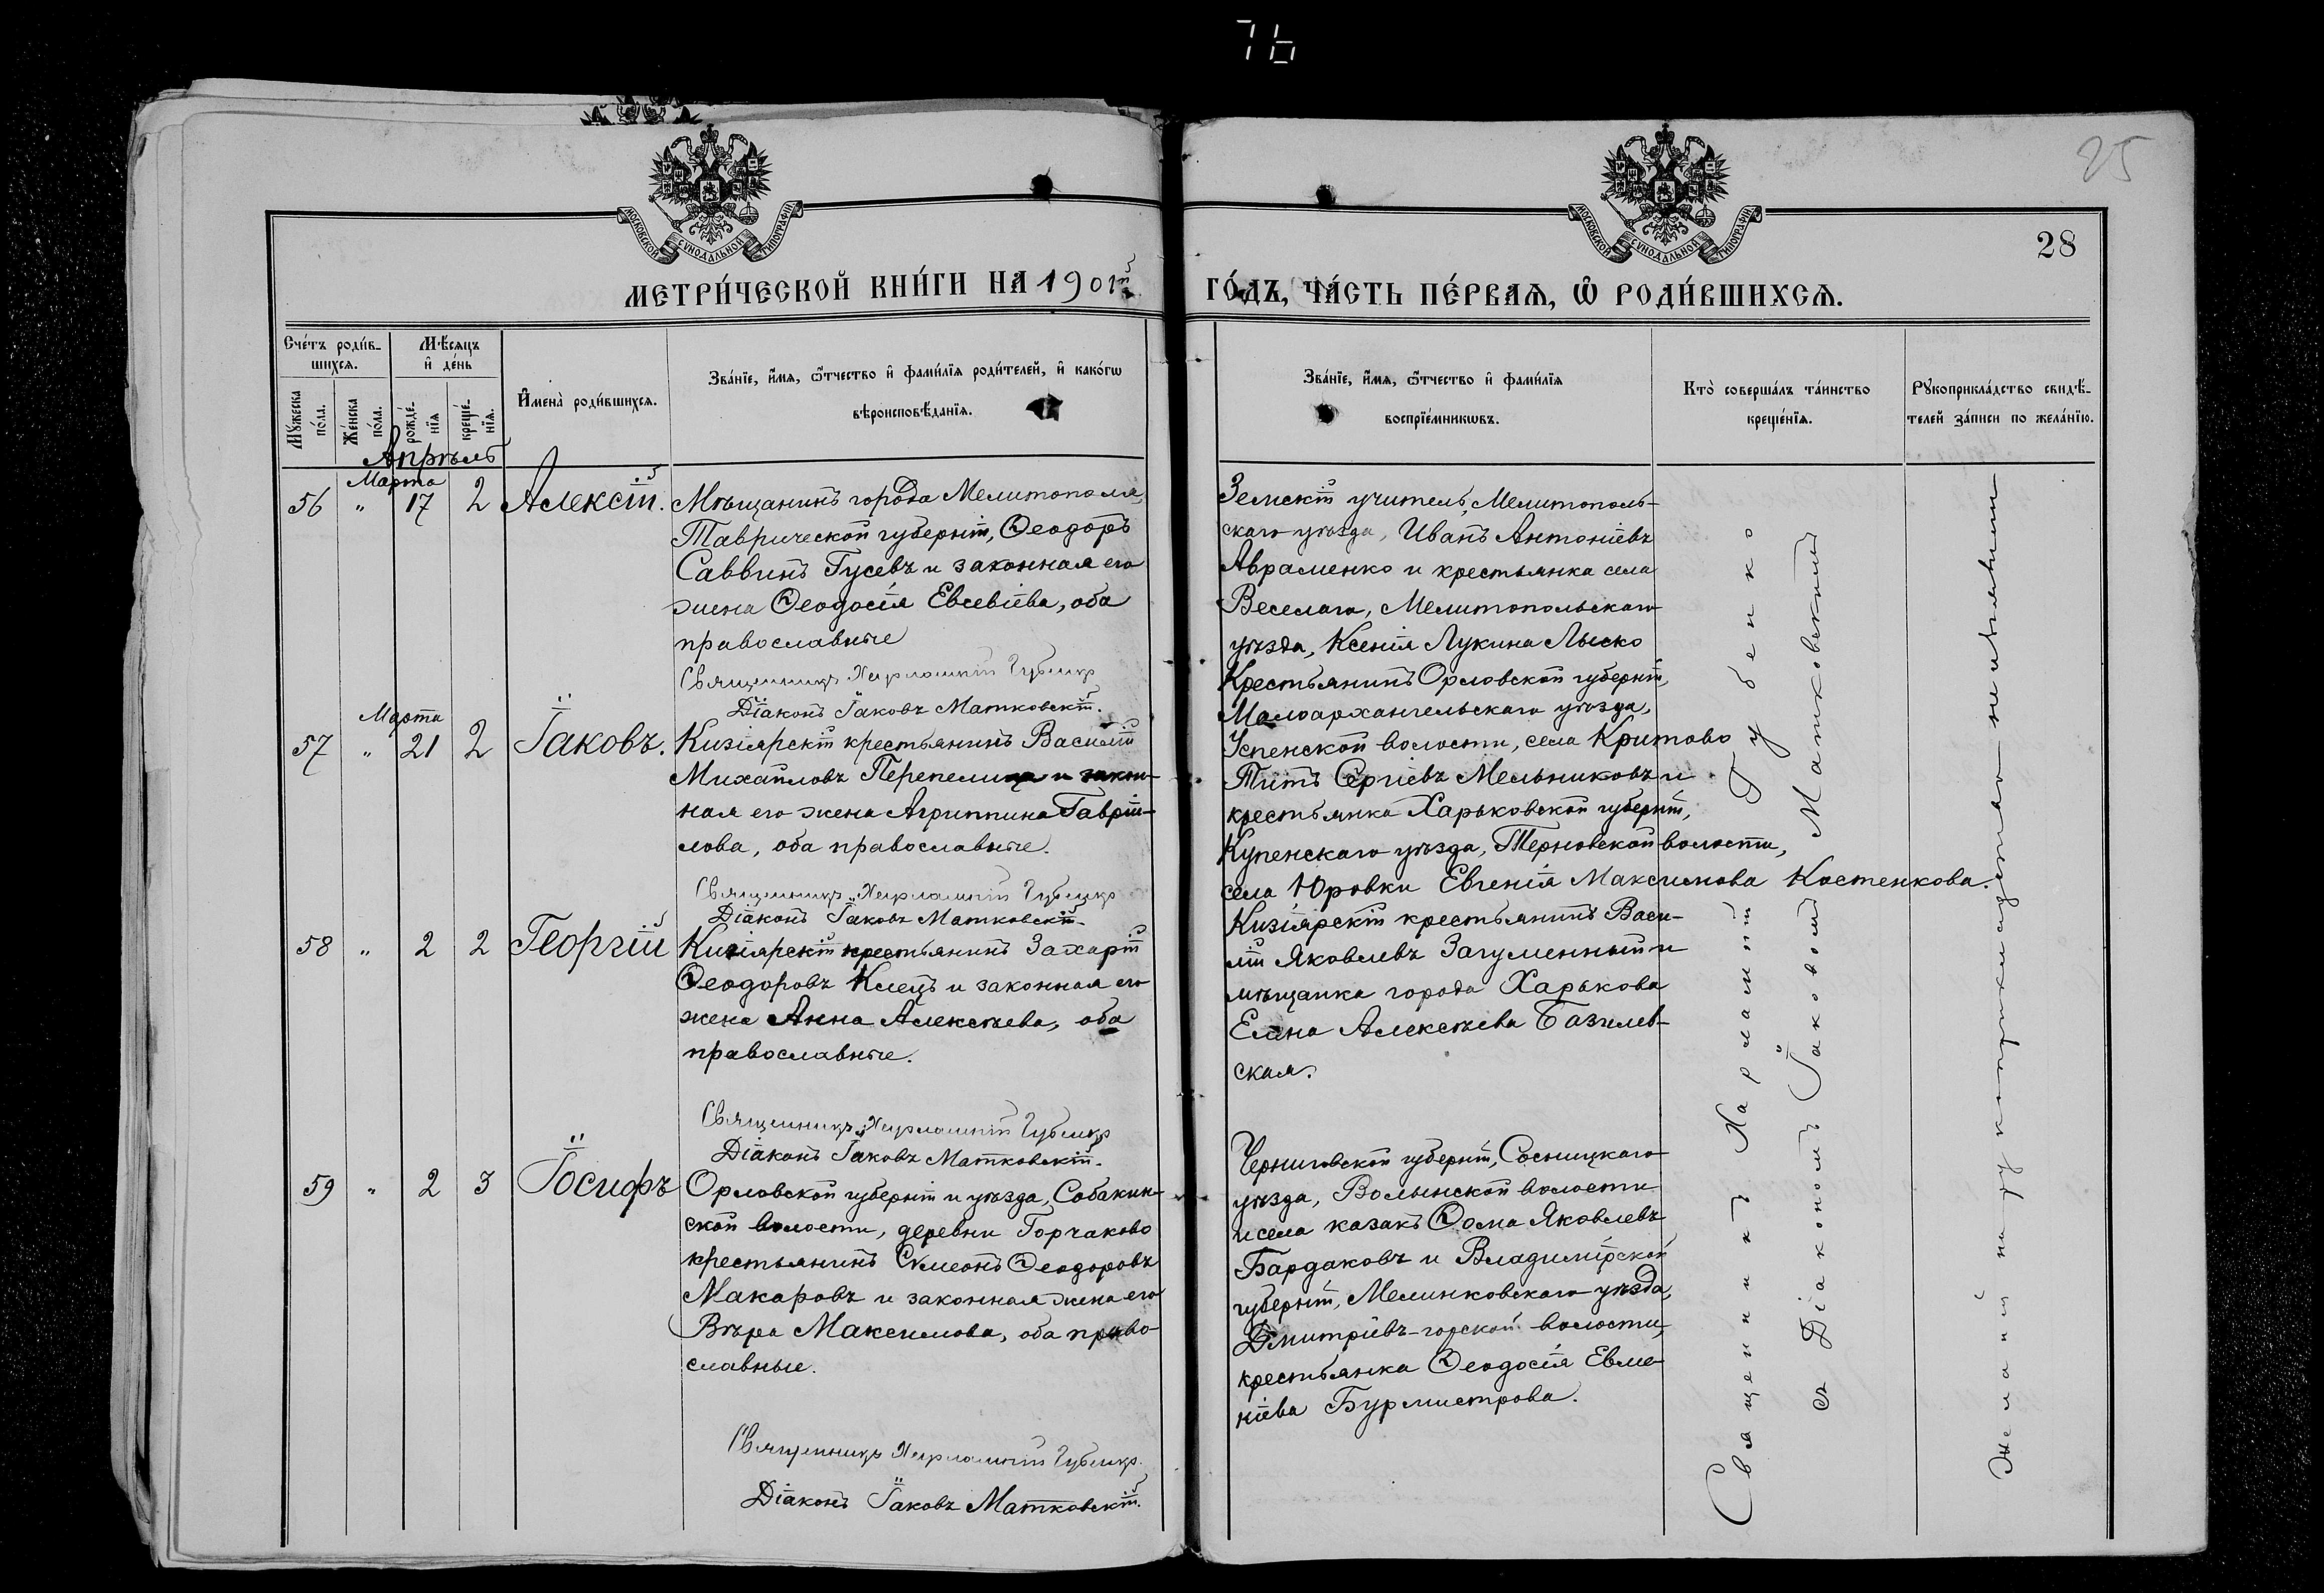 76
25
28
МОСКОВСКОЙ СУНОДАЛЬНОЙ ТИПОГРАФІИ.
МОСКОВСКОЙ СУНОДАЛЬНОЙ ТИПОГРАФІИ.
МЕТРИ́ЧЕСКОЙ КНИ́ГИ НА 1901й
ГО́ДЪ, ЧА́СТЬ ПЕ́РВАЯ, Ѡ҆ РОДИ́ВШИХСЯ.
Сче́тъ роди́в-
шихся.
Мѣ́сяцъ
и҆ де́нь
Мꙋ́жеска
по́ла.
Же́нска
по́ла.
рожде́-
нїя
креще́-
нїя.
И҆мена̀ роди́вшихся.
Зва́нїе, и҆́мя, ѻ҆́тчество и҆ фами́лїя роди́телей, и҆ како́гѡ
вѣроисповѣ́данїя.
Зва́нїе, и҆́мя, ѻ҆́тчество и҆ фами́лїя
воспрїе́мникѡвъ.
Кто̀ соверша́лъ та́инство
креще́нїя.
Рꙋкоприкла́дство свидѣ́-
телей за́писи по жела́нїю.
Апрѣль
56 " Марта 17 2 Алексій.
Мѣщанинъ города Мелитополя,
Таврической губерніи, Ѳеодоръ
Саввинъ Гусевъ и законная его
жена Ѳеодосія Евсевіева, оба
православные
Священникъ Харлампій Губенко
Діаконъ Іаковъ Матковскій.
Земскій учитель, Мелитополь-
скаго уѣзда, Иванъ Антоніевъ
Авраменко и крестьянка села
Веселаго, Мелитопольскаго
уѣзда, Ксенія Лукина Лыско
57 " Марта 21 2 Іаковъ.
Кизіярскій крестьянинъ Василій
Михайловъ Перепелица и закон-
ная его жена Агриппина Гаврій-
лова, оба православные.
Священникъ Харлампій Губенко
Діаконъ Іаковъ Матковскій.
Крестьянинъ Орловской губерніи,
Малоархангельскаго уѣзда,
Успенской волости, села Критово
Титъ Сергіевъ Мельниковъ и
крестьянка Харьковской губерніи,
Купенскаго уѣзда, Терновской волости,
села Юровки Евгенія Максимова Костенкова.
58 " 2 2 Георгій
Кизіярскій крестьянинъ Захарій
Ѳеодоровъ Клецъ и законная его
жена Анна Алексѣева, оба
православные.
Священникъ Харлампій Губенко
Діаконъ Іаковъ Матковскій.
Кизіярскій крестьянинъ Васи-
лій Яковлевъ Загуменный и
мѣщанка города Харькова
Елена Алексѣева Базилев-
ская.
59 " 2 3 Іосифъ
Орловской губерніи и уѣзда, Собакин-
ской волости, деревни Горчаково
крестьянинъ Сѵмеонъ Ѳеодоровъ
Макаровъ и законная жена его
Вѣра Максимова, оба право-
славные.
Священникъ Харлампій Губенко
Діаконъ Іаковъ Матковскій.
Черниговской губерніи, Сосницкаго
уѣзда, Волынской волости
и села казакъ Ѳома Яковлевъ
Бардаковъ и Владимірской
губерніи, Мелинковскаго уѣзда,
Дмитріевъ-горской волости,
крестьянка Ѳеодосія Евме-
ніева Бурмистрова.
Священникъ Харлампій Губенко
съ Діакономъ Іаковомъ Матковскимъ